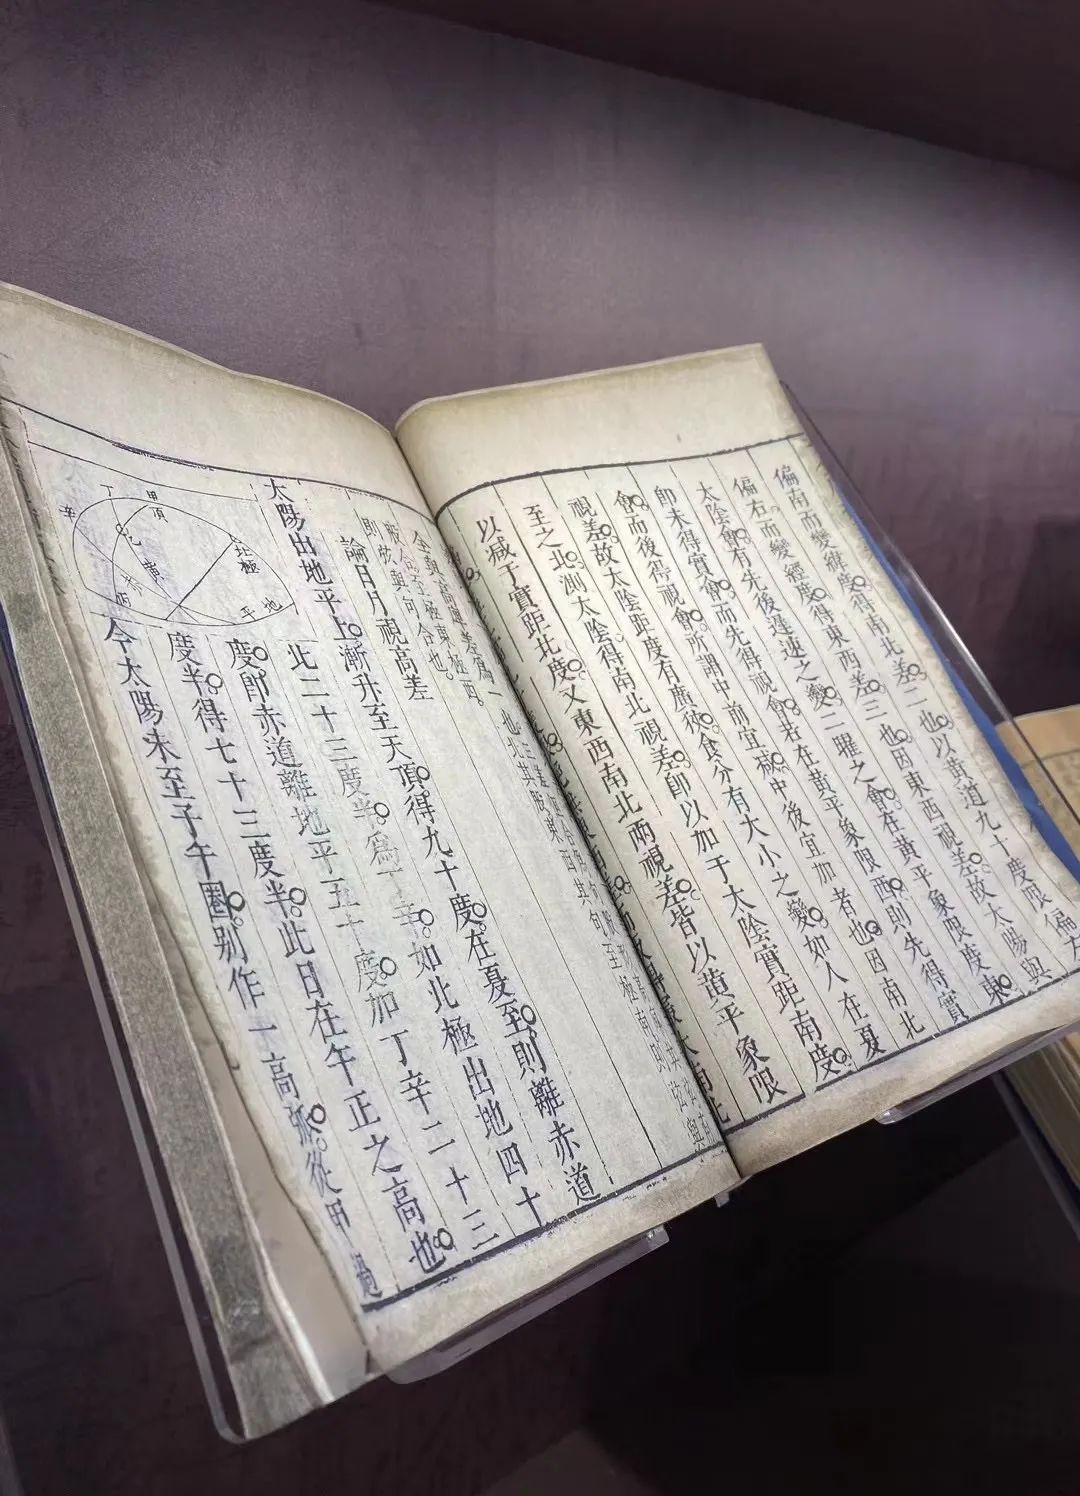 偏南而變緯度。得南北差。二也。以黃道九十度限偏左
偏右。而變經度。得東西差。三也。因東西視差。故太陽與
太陰會。有先後遲速之變。二曜之會。在黃平象限度東。
即未得實會。而先得視會。若在黃平象限西。則先得實
會。而後得視會。所謂中前宜減。中後宜加者也。因南北
視差。故太陰距度有廣狹。食分有大小之變。如人在夏
至之北。測太陰。得南北視差。即以加于太陰實距南度。
以減于實距北度。又東西南北兩視差。皆以黃平象限
論日月視高差
太陽出地平上。漸升至天頂。得九十度。在夏至。則離赤道
北二十三度半。為丁辛。如北極出地四十
度。即赤道離地平五十度。加丁辛二十三
度半。得七十三度半。此日在午正之高也。
今太陽未至子午圈。別作一高弧。從甲過
丁
甲
頂
辛
北極
地
平